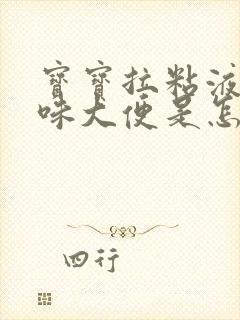 宝宝拉粘液
味大便是怎
四行